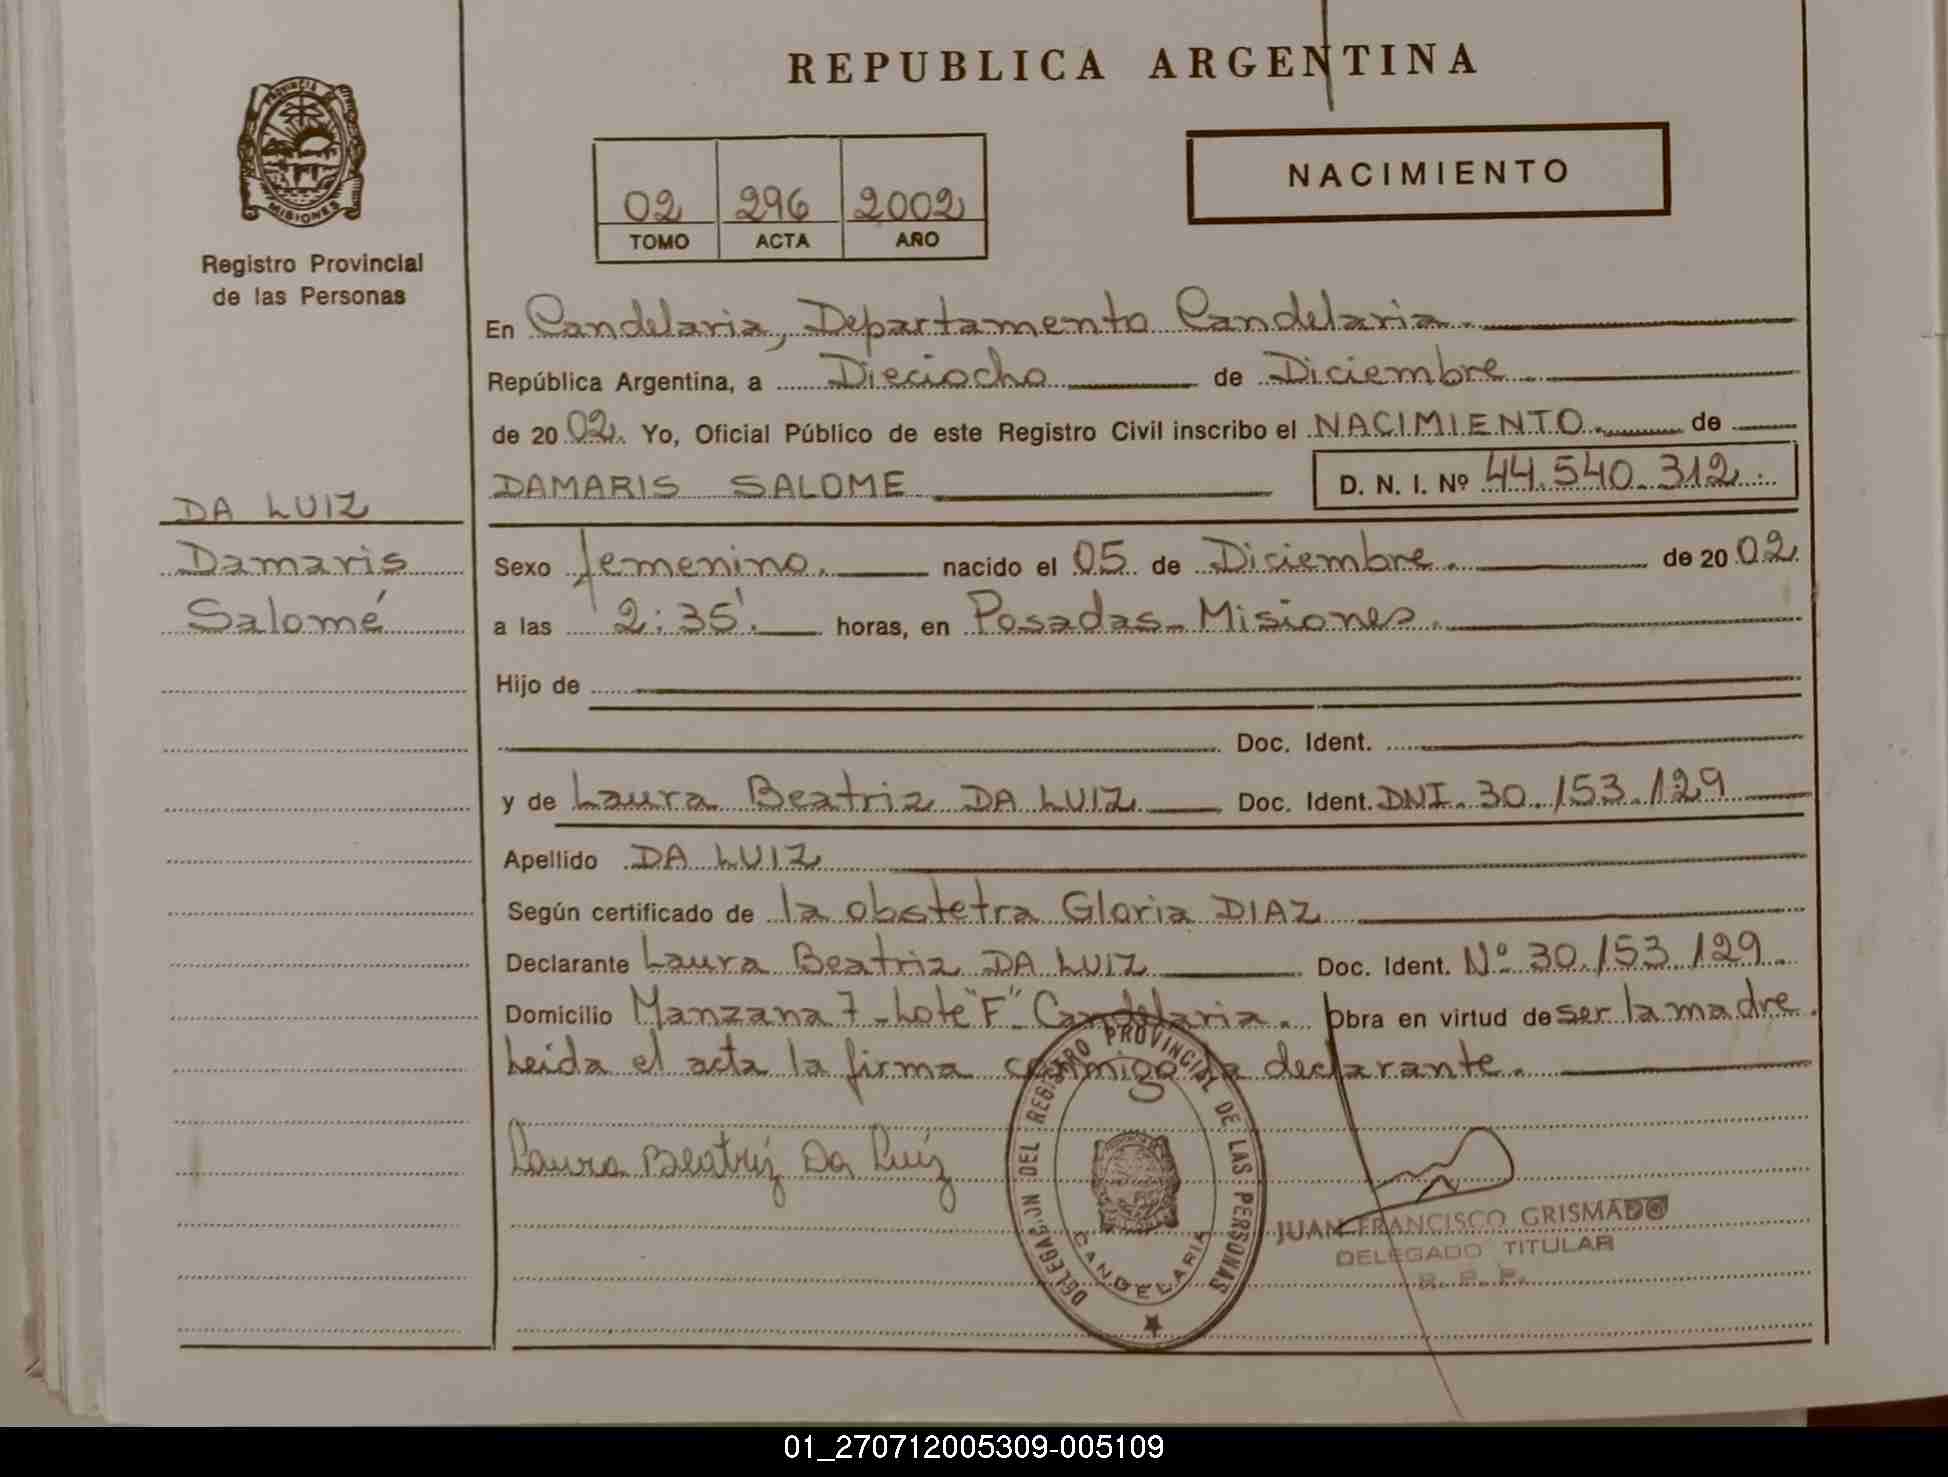 REPUBLICA ARGENTINA
PROVINCIA DE MISIONES
Registro Provincial
de las Personas
02 296 2002
TOMO ACTA AÑO
NACIMIENTO
En Candelaria, Departamento Candelaria.
República Argentina, a Dieciocho de Diciembre
de 2002. Yo, Oficial Público de este Registro Civil inscribo el NACIMIENTO. de
DAMARIS SALOME D. N. I. Nº 44.540.312.
DA LUIZ
Damaris
Salomé
Sexo femenino. nacido el 05 de Diciembre. de 2002.
a las 2:35'. horas, en Posadas - Misiones.
Hijo de
Doc. Ident.
y de Laura Beatriz DA LUIZ Doc. Ident. DNI. 30.153.129
Apellido DA LUIZ
Según certificado de la obstetra Gloria DIAZ
Declarante Laura Beatriz DA LUIZ Doc. Ident. Nº 30.153.129.
Domicilio Manzana 7 - Lote "F" Candelaria. Obra en virtud de ser la madre.
Leida el acta la firma conmigo la declarante.
Laura Beatriz Da Luiz
DELEGACION DEL REGISTRO PROVINCIAL DE LAS PERSONAS
CANDELARIA
JUAN FRANCISCO GRISMADO
DELEGADO TITULAR
R. P. P.
01_270712005309-005109